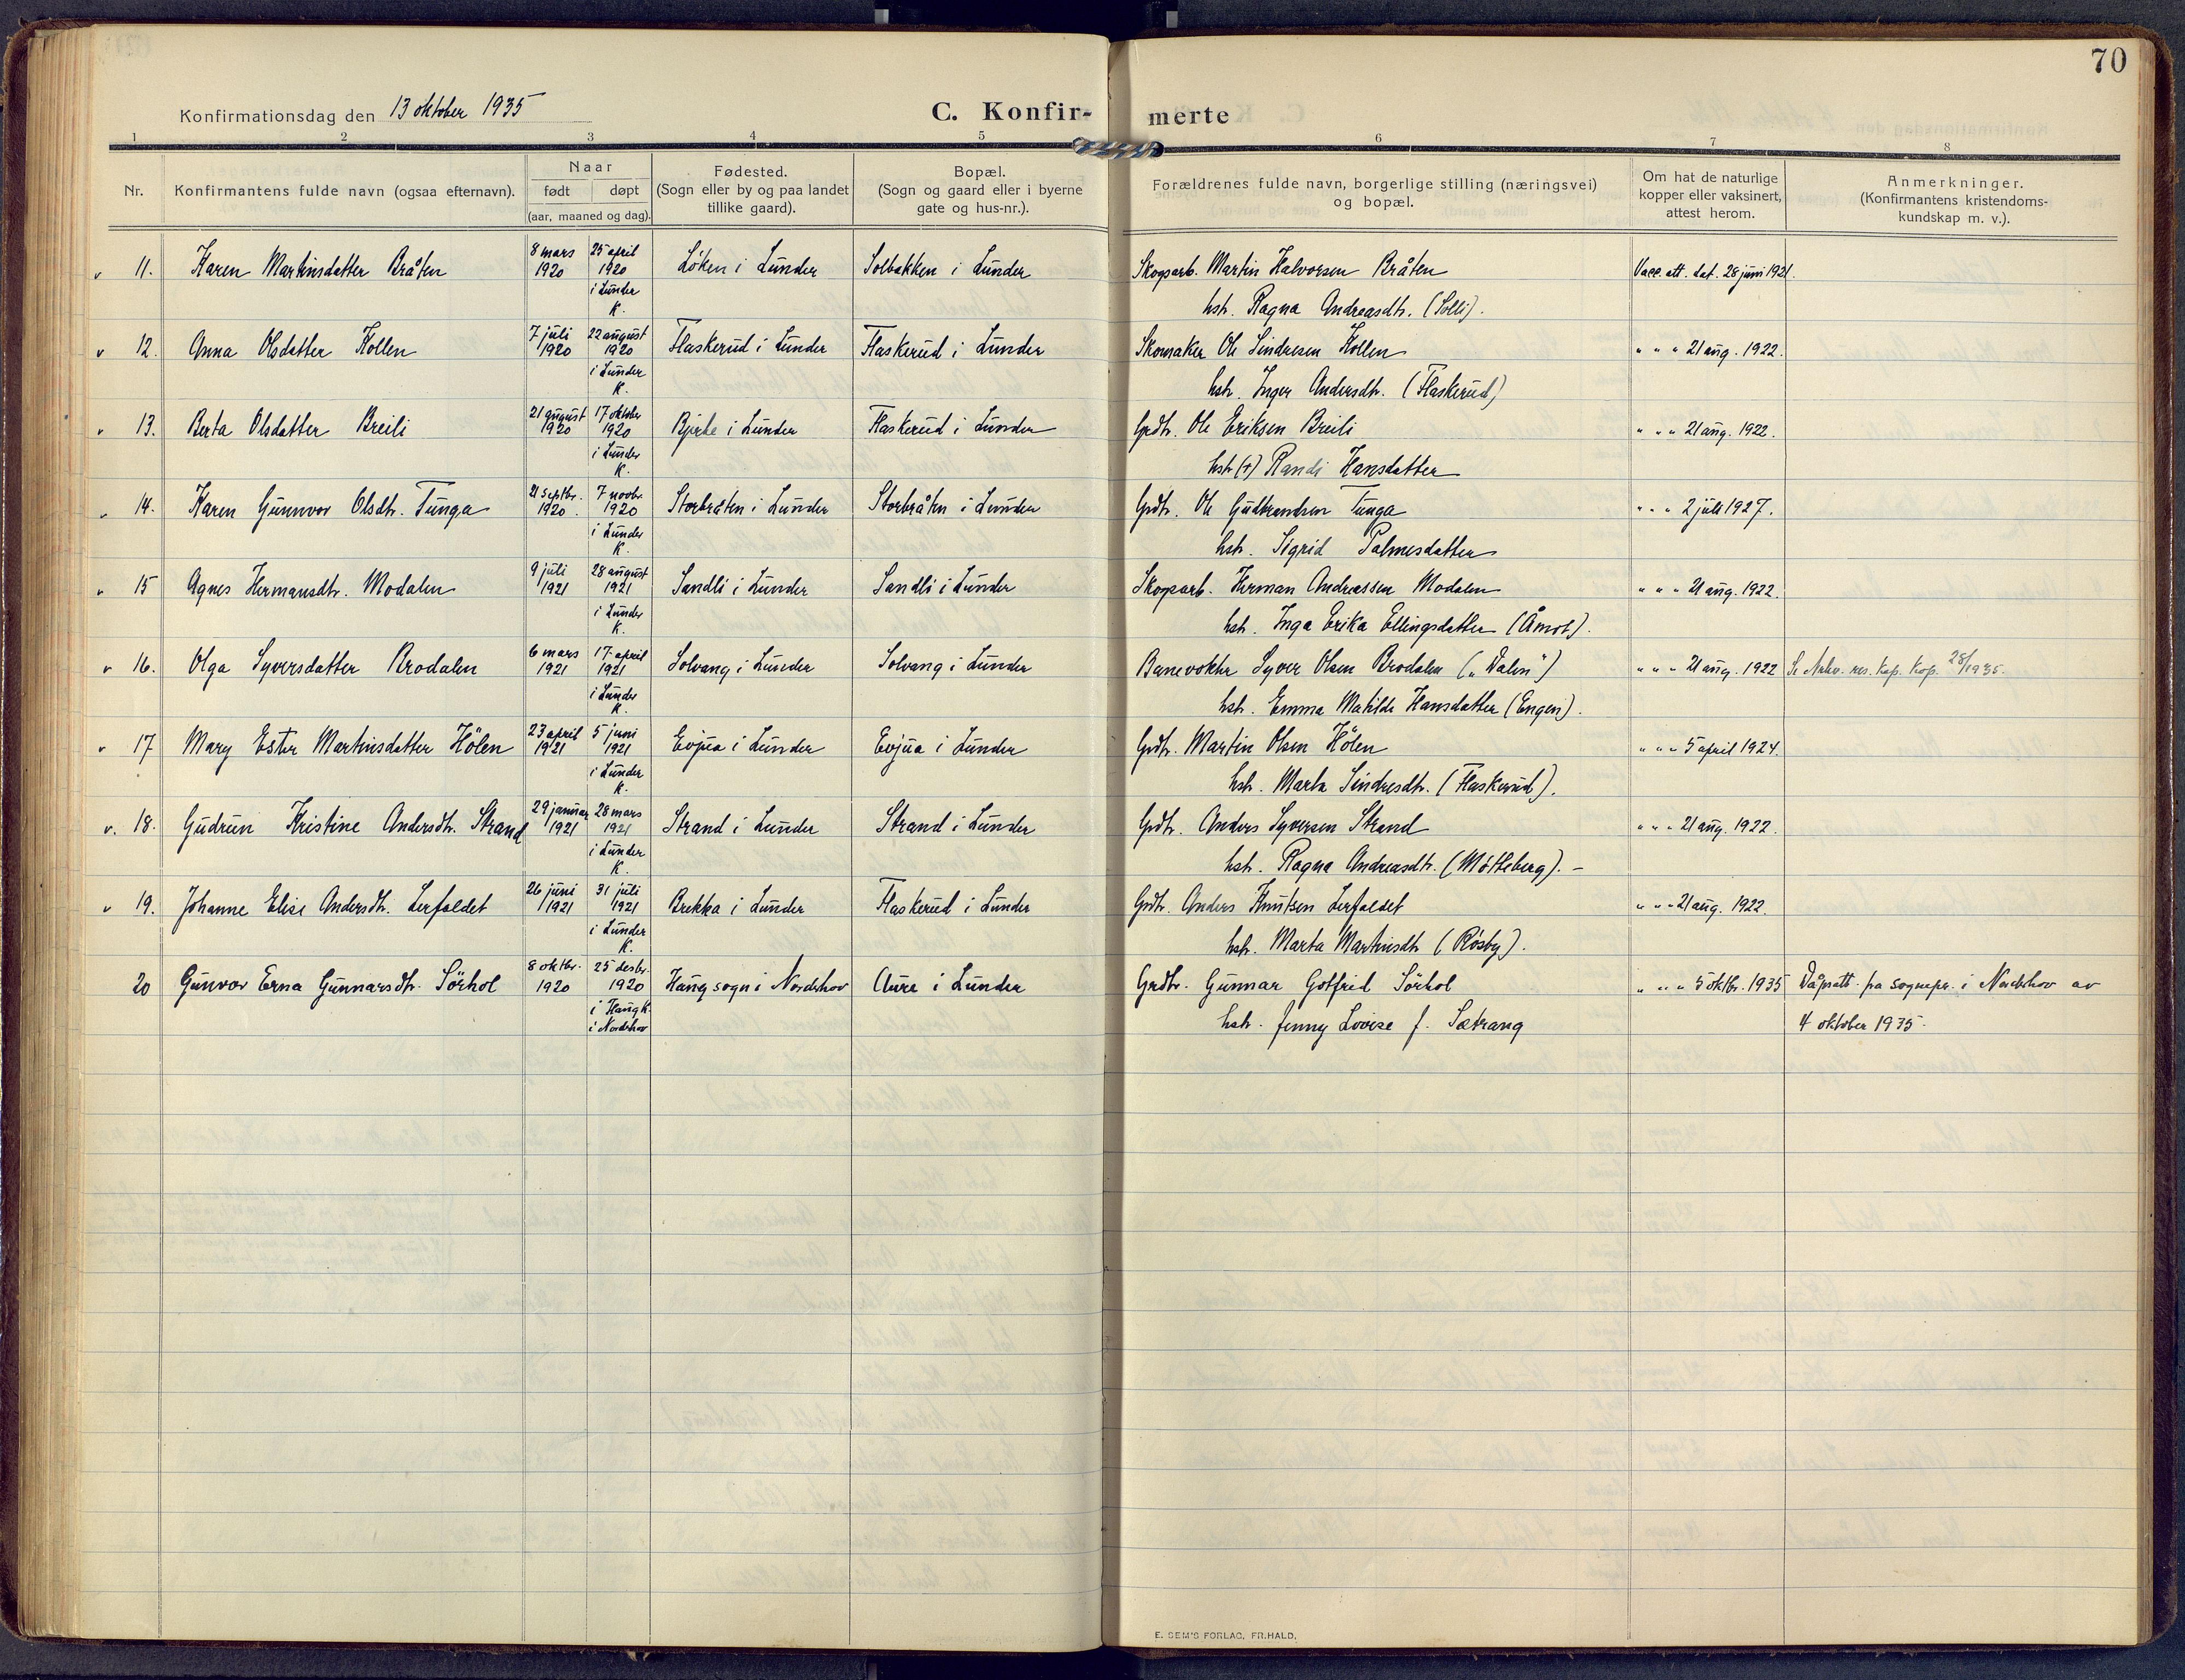 70
Konfirmationsdag den 13 oktober 1935
C. Konfirmerte
1 2 3 4 5 6 7 8
Nr.
Konfirmantens fulde navn (ogsaa efternavn).
Naar
født døpt
(aar, maaned og dag).
Fødested.
(Sogn eller by og paa landet
tillike gaard).
Bopæl.
(Sogn og gaard eller i byerne
gate og hus-nr.).
Forældrenes fulde navn, borgerlige stilling (næringsvei)
og bopæl.
Om hat de naturlige
kopper eller vaksinert,
attest herom.
Anmerkninger.
(Konfirmantens kristendoms-
kundskap m. v.).
v 11. Karen Martinsdatter Bråten 8 mars 1920 25 april 1920 i Lunder K. Løken i Lunder Solbakken i Lunder Skogsarb. Martin Halvorsen Bråten Vacc. att. dat. 28 juni 1921.
hstr. Ragna Andreasdtr. (Solli).
v 12. Anna Olsdatter Kollen 7 juli 1920 22 august 1920 i Lunder K. Flaskerud i Lunder Flaskerud i Lunder Skomaker Ole Sindresen Kollen " " " 21 aug. 1922.
hstr. Inger Andersdtr. (Flaskerud)
v 13. Berta Olsdatter Breili 21 august 1920 17 oktober 1920 i Lunder K. Bjerke i Lunder Flaskerud i Lunder Grdbr. Ole Eriksen Breili " " " 21 aug. 1922.
hstr (+) Randi Hansdatter
v 14. Karen Gunnvor Olsdtr. Tunga 21 septbr. 1920. 7 novbr. 1920 i Lunder K. Storbråten i Lunder Storbråten i Lunder Grdbr. Ole Gudbrandsen Tunga " " " 2 juli 1927.
hstr. Sigrid Palmesdatter
v 15 Agnes Hermansdtr. Modalen 9 juli 1921 28 august 1921 i Lunder K. Sandli i Lunder Sandli i Lunder Skogsarb. Herman Andreassen Modalen " " " 21 aug. 1922.
hstr. Inga Erika Ellingsdatter (Åmot).
v 16. Olga Syversdatter Brodalen 6 mars 1921 17. april 1921 i Lunder K. Solvang i Lunder Solvang i Lunder Banevokter Syver Olsen Brodalen („Dalen") " " " 21 aug. 1922 Se res. kap. Kop. 1935.
hstr. Emma Matilde Hansdatter (Engen).
v 17 Mary Ester Martinsdatter Hölen 23 april 1921 5 juni 1921 i Lunder K. Evjua i Lunder Evjua i Lunder Grdbr. Martin Olsen Hölen " " " 5 april 1924.
hstr. Marta Sindresdtr. (Flaskerud).
v. 18. Gudrun Kristine Andersdtr. Strand 29 januar 1921 28 mars 1921 i Lunder K. Strand i Lunder Strand i Lunder Grdbr. Anders Syversen Strand " " " 21 aug. 1922.
hstr. Ragna Andreasdtr. (Møtteberg). –
v 19. Johanne Elise Andersdtr. Lerfaldet 26 juni 1921 31 juli 1921 i Lunder K. Brekka i Lunder Flaskerud i Lunder Grdbr. Anders Knutsen Lerfaldet " " " 21 aug. 1922.
hstr. Marta Martinsdtr (Røsby).
20 Gunvor Erna Gunnarsdtr. Sörhol 8 oktbr. 1920 25 desbr. 1920 i Haug K. i Norderhov Haug sogn i Norderhov Aure i Lunder Grdbr. Gunnar Gotfred Sörhol " " " 5 oktbr. 1935 Dåpsatt. fra sognepr. i Norderhov av
hstr. Jenny Lovise f. Sætrang 4 oktober 1935.
E. SEM'S FORLAG, FR.HALD.